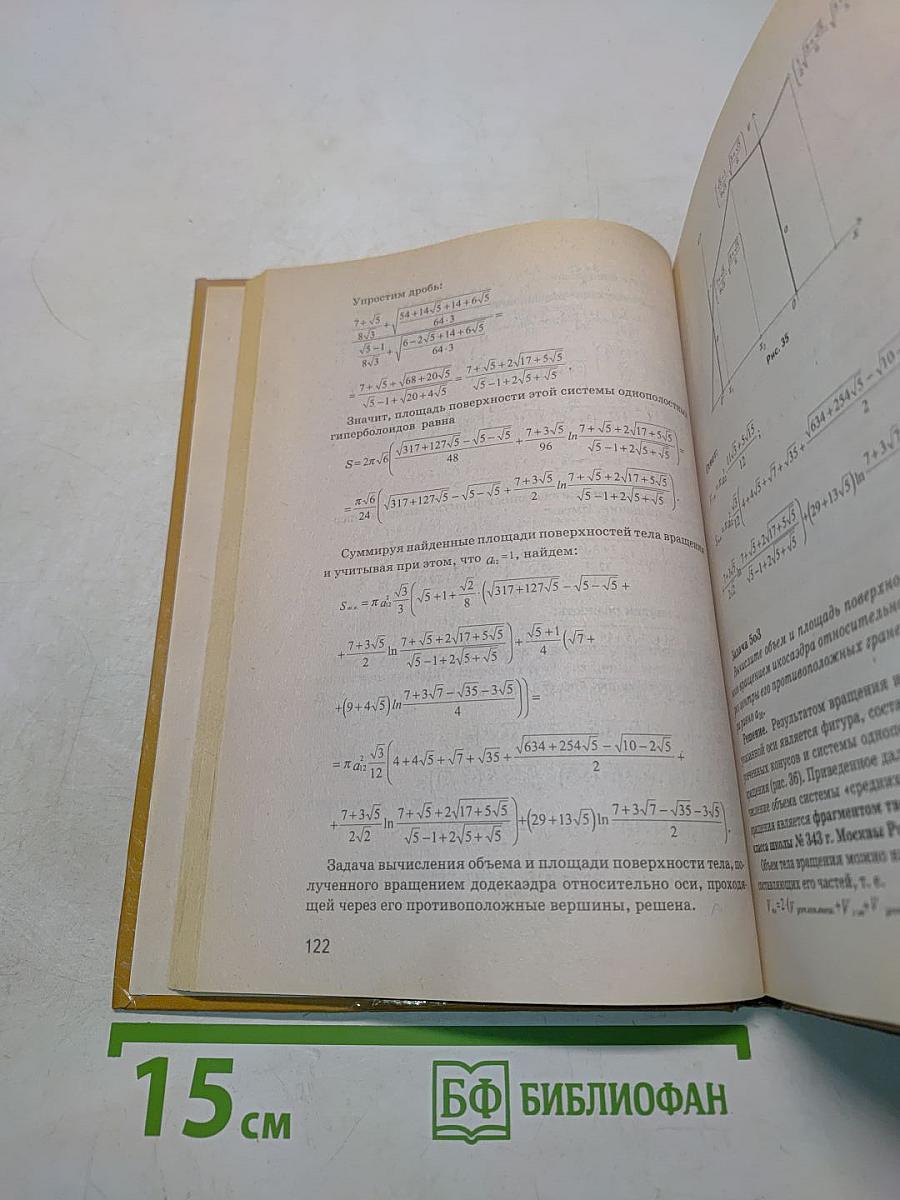 Упростим дробь:
\frac{\frac{7+\sqrt{5}}{8\sqrt{3}}+\sqrt{\frac{54+14\sqrt{5}+14+6\sqrt{5}}{64·3}}}{\frac{\sqrt{5}-1}{8\sqrt{3}}+\sqrt{\frac{6-2\sqrt{5}+14+6\sqrt{5}}{64·3}}}=
=\frac{7+\sqrt{5}+\sqrt{68+20\sqrt{5}}}{\sqrt{5}-1+\sqrt{20+4\sqrt{5}}}=\frac{7+\sqrt{5}+2\sqrt{17+5\sqrt{5}}}{\sqrt{5}-1+2\sqrt{5+\sqrt{5}}}.
Значит, площадь поверхности этой системы однополостных
гиперболоидов равна
S=2π\sqrt{6}(\frac{\sqrt{317+127\sqrt{5}}-\sqrt{5-\sqrt{5}}}{48}+\frac{7+3\sqrt{5}}{96}ln\frac{7+\sqrt{5}+2\sqrt{17+5\sqrt{5}}}{\sqrt{5}-1+2\sqrt{5+\sqrt{5}}})=
=\frac{π\sqrt{6}}{24}(\sqrt{317+127\sqrt{5}}-\sqrt{5-\sqrt{5}}+\frac{7+3\sqrt{5}}{2}ln\frac{7+\sqrt{5}+2\sqrt{17+5\sqrt{5}}}{\sqrt{5}-1+2\sqrt{5+\sqrt{5}}}).
Суммируя найденные площади поверхностей тела вращения
и учитывая при этом, что a₁₂=1, найдем:
S_{т.в.}=πa_{12}^{2}\frac{\sqrt{3}}{3}(\sqrt{5}+1+\frac{\sqrt{2}}{8}·(\sqrt{317+127\sqrt{5}}-\sqrt{5-\sqrt{5}}+
+\frac{7+3\sqrt{5}}{2}ln\frac{7+\sqrt{5}+2\sqrt{17+5\sqrt{5}}}{\sqrt{5}-1+2\sqrt{5+\sqrt{5}}})+\frac{\sqrt{5}+1}{4}(\sqrt{7}+
+(9+4\sqrt{5})ln\frac{7+3\sqrt{7}-\sqrt{35}-3\sqrt{5}}{4}))=
=πa_{12}^{2}\frac{\sqrt{3}}{12}(4+4\sqrt{5}+\sqrt{7}+\sqrt{35}+\frac{\sqrt{634+254\sqrt{5}}-\sqrt{10-2\sqrt{5}}}{2}+
+\frac{7+3\sqrt{5}}{2\sqrt{2}}ln\frac{7+\sqrt{5}+2\sqrt{17+5\sqrt{5}}}{\sqrt{5}-1+2\sqrt{5+\sqrt{5}}})+(29+13\sqrt{5})ln\frac{7+3\sqrt{7}-\sqrt{35}-3\sqrt{5}}{2}).
Задача вычисления объема и площади поверхности тела, по-
лученного вращением додекаэдра относительно оси, проходя-
щей через его противоположные вершины, решена.
122
Рис. 35
Ответ:
Задача 5о3
Вычислите объем и площадь поверхно
вращением икосаэдра относительно
центры его противоположных гране
Решение. Результатом вращения и
указанной оси является фигура, соста
усеченных конусов и системы однопо
вращения (рис. 36). Приведенное дал
числение объема системы «средних
вращения является фрагментом тв
класса школы № 343 г. Москвы Ро
Объем тела вращения можно на
составляющих его частей, т. е.
15 см
БФ БИБЛИОФАН